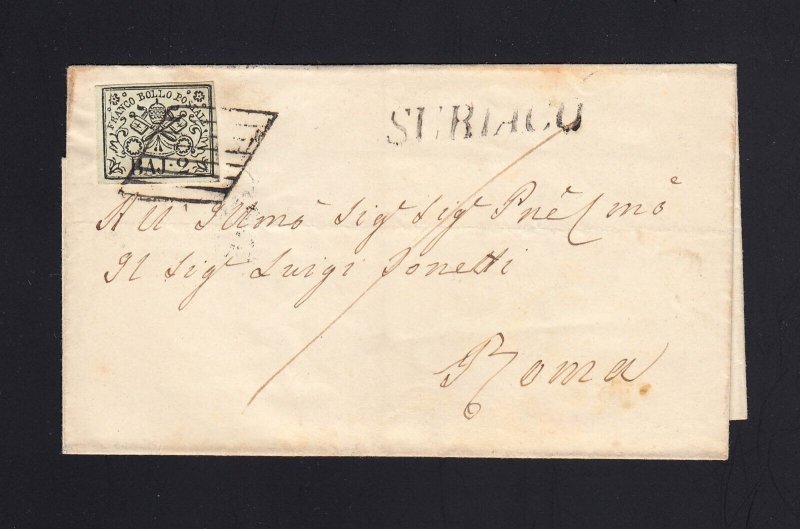 FRANCO BOLLO POSTALE
BAJ·2
SUBIACO
All Illmo Sigr Sigr Pne Cmo
Il Sigr Luigi Sonetti
Roma